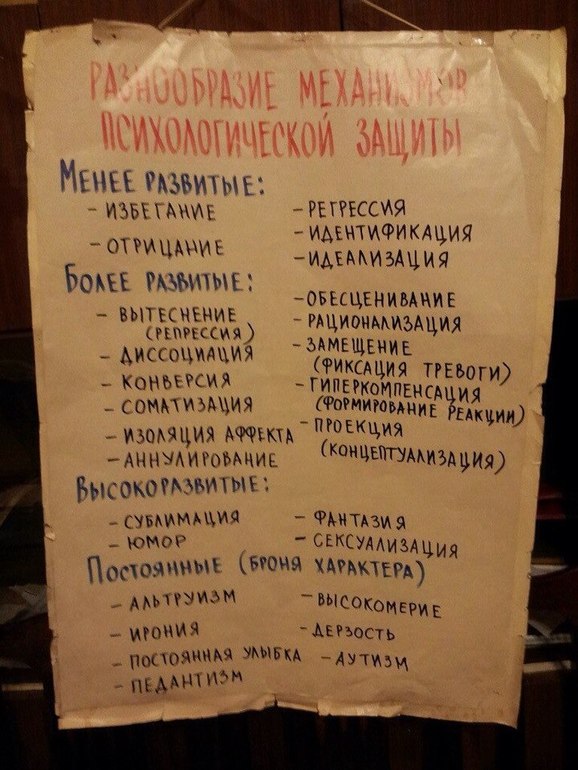 РАЗНООБРАЗИЕ МЕХАНИЗМОВ
ПСИХОЛОГИЧЕСКОЙ ЗАЩИТЫ
МЕНЕЕ РАЗВИТЫЕ:
- ИЗБЕГАНИЕ
- ОТРИЦАНИЕ
- РЕГРЕССИЯ
- ИДЕНТИФИКАЦИЯ
- ИДЕАЛИЗАЦИЯ
БОЛЕЕ РАЗВИТЫЕ:
- ВЫТЕСНЕНИЕ
(РЕПРЕССИЯ)
- ДИССОЦИАЦИЯ
- КОНВЕРСИЯ
- СОМАТИЗАЦИЯ
- ИЗОЛЯЦИЯ АФФЕКТА
- АННУЛИРОВАНИЕ
- ОБЕСЦЕНИВАНИЕ
- РАЦИОНАЛИЗАЦИЯ
- ЗАМЕЩЕНИЕ
(ФИКСАЦИЯ ТРЕВОГИ)
- ГИПЕРКОМПЕНСАЦИЯ
(ФОРМИРОВАНИЕ РЕАКЦИИ)
- ПРОЕКЦИЯ
(КОНЦЕПТУАЛИЗАЦИЯ)
ВЫСОКОРАЗВИТЫЕ:
- СУБЛИМАЦИЯ
- ЮМОР
- ФАНТАЗИЯ
- СЕКСУАЛИЗАЦИЯ
ПОСТОЯННЫЕ (БРОНЯ ХАРАКТЕРА)
- АЛЬТРУИЗМ
- ИРОНИЯ
- ПОСТОЯННАЯ УЛЫБКА
- ПЕДАНТИЗМ
- ВЫСОКОМЕРИЕ
- ДЕРЗОСТЬ
- АУТИЗМ